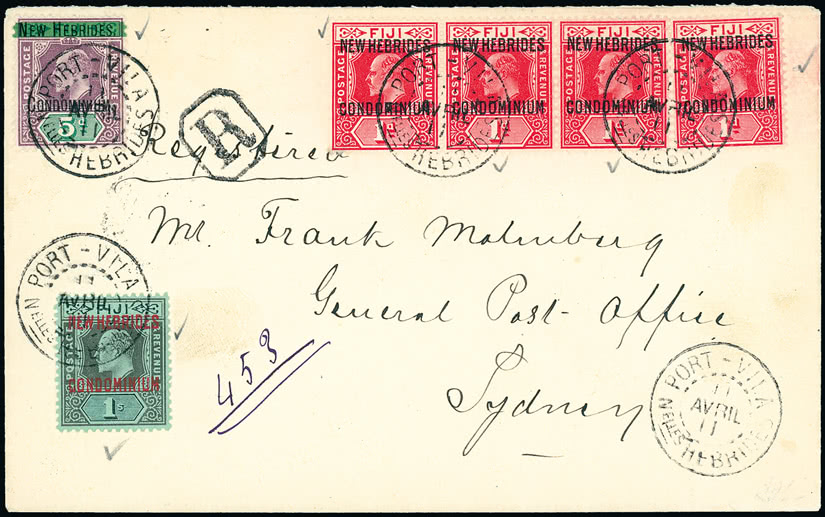 NEW HEBRIDES.
POSTAGE
REVENUE
CONDOMINIUM.
5
PORT-VILA
HEBRIDES
R
Registered
FIJI FIJI FIJI FIJI
NEW HEBRIDES NEW HEBRIDES NEW HEBRIDES NEW HEBRIDES
POSTAGE REVENUE POSTAGE REVENUE POSTAGE REVENUE POSTAGE REVENUE
CONDOMINIUM CONDOMINIUM CONDOMINIUM CONDOMINIUM
1d 1d 1d 1d
PORT-VILA
11
HEBRIDES
PORT-VILA
11
HEBRIDES
Mr. Frank Malmberg
General Post-Office
Sydney
453
PORT-VILA
11
AVRIL
FIJI
NEW HEBRIDES
POSTAGE
REVENUE
CONDOMINIUM
1s
PORT-VILA
11
AVRIL
11
NELLES HEBRIDES